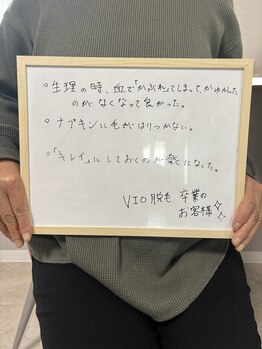 ○生理の時、血で「かぶれ」てしまって、かゆかった
のがなくなって良かった。
○ナプキンに毛がはりつかない。
○「キレイ」にしておくのが楽になった。
VIO脱毛 卒業の
お客様